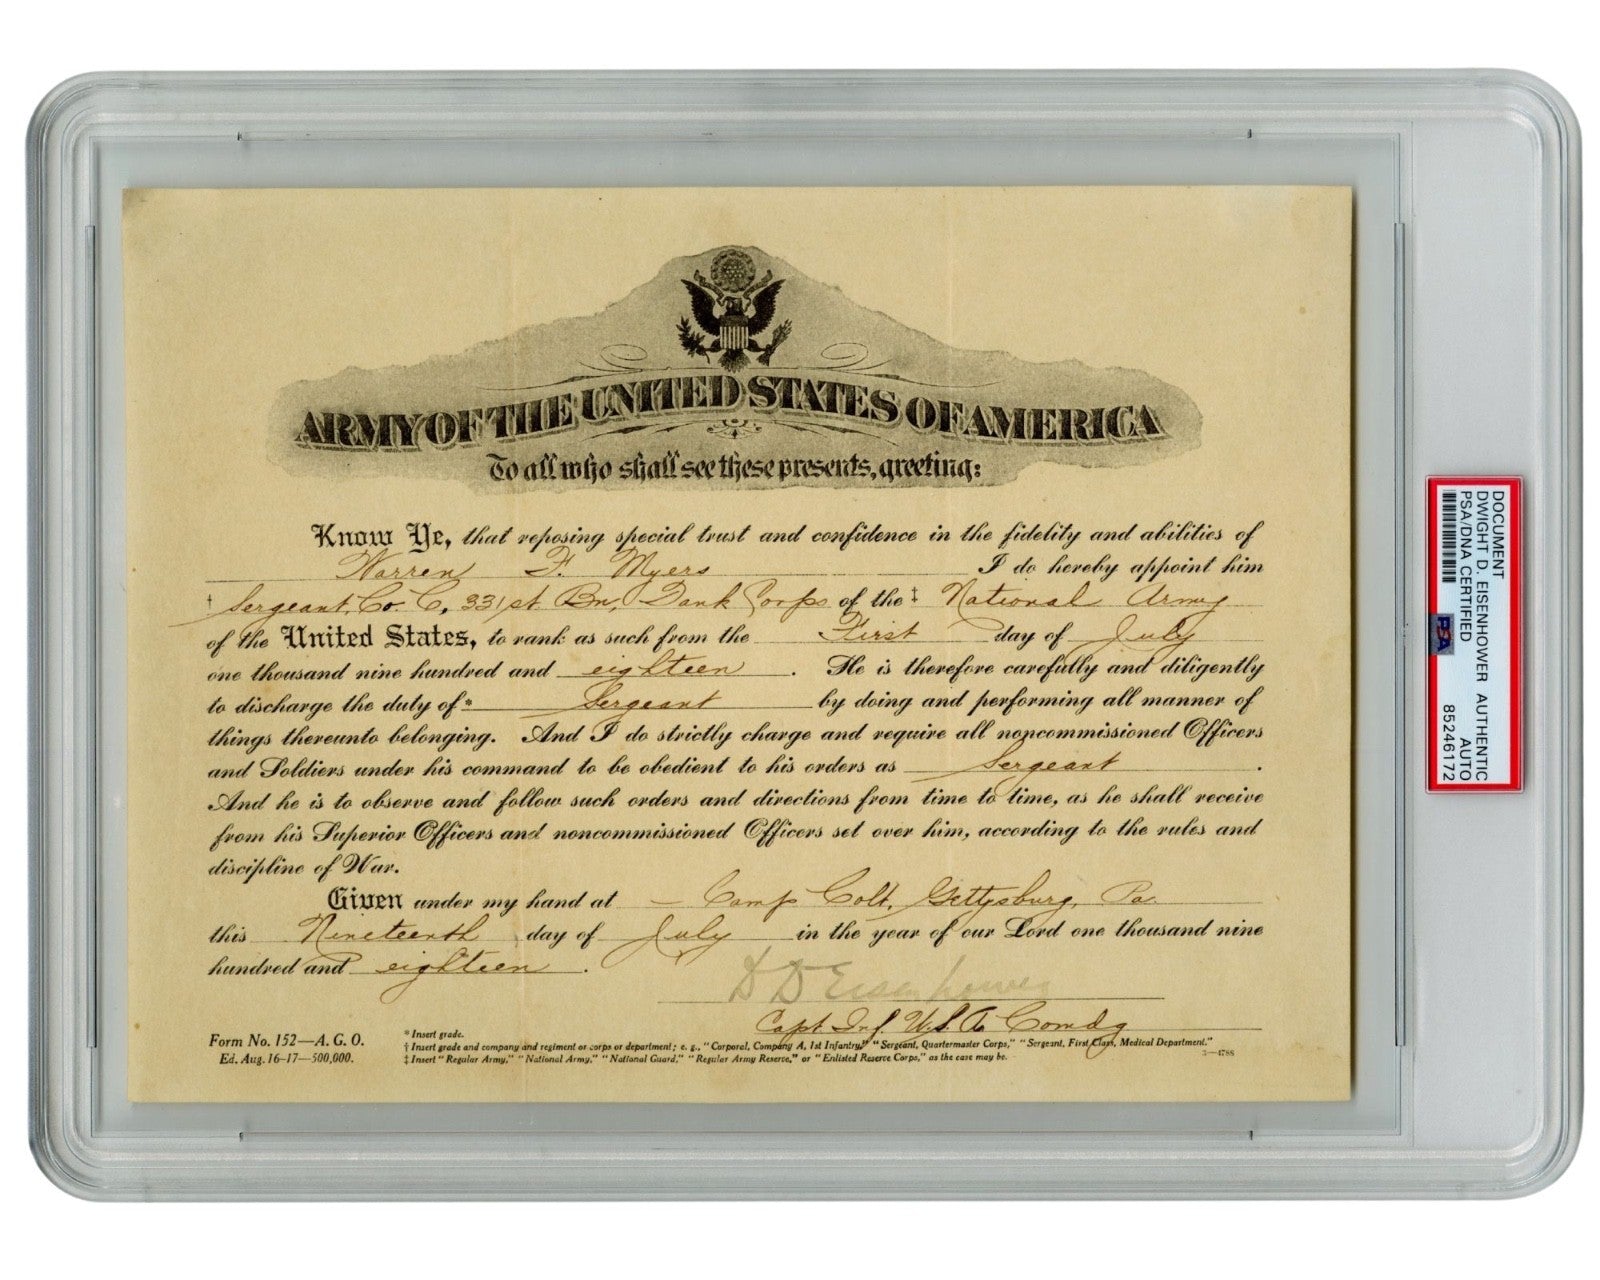 ARMY OF THE UNITED STATES OF AMERICA
To all who shall see these presents, greeting:
Know Ye, that reposing special trust and confidence in the fidelity and abilities of
Warren F. Myers I do hereby appoint him
† Sergeant, Co. C, 331st Bn, Tank Corps of the ‡ National Army
of the United States, to rank as such from the First day of July
one thousand nine hundred and eighteen. He is therefore carefully and diligently
to discharge the duty of* Sergeant by doing and performing all manner of
things thereunto belonging. And I do strictly charge and require all noncommissioned Officers
and Soldiers under his command to be obedient to his orders as Sergeant.
And he is to observe and follow such orders and directions from time to time, as he shall receive
from his Superior Officers and noncommissioned Officers set over him, according to the rules and
discipline of War.
Given under my hand at – Camp Colt, Gettysburg, Pa.
this Nineteenth day of July in the year of our Lord one thousand nine
hundred and eighteen.
D D Eisenhower
Capt Inf. U.S.A Comdg
Form No. 152—A. G. O.
Ed. Aug. 16-17—500,000.
* Insert grade.
† Insert grade and company and regiment or corps or department; e. g., "Corporal, Company A, 1st Infantry," "Sergeant, Quartermaster Corps," "Sergeant, First Class, Medical Department."
‡ Insert "Regular Army," "National Army," "National Guard," "Regular Army Reserve," or "Enlisted Reserve Corps," as the case may be.
3—4788
DOCUMENT
DWIGHT D. EISENHOWER AUTHENTIC
PSA/DNA CERTIFIED AUTO
85246172
PSA